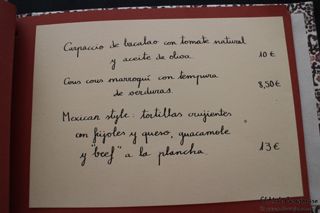 Carpaccio de bacalao con tomate natural
y aceite de oliva. 10 €
Cous cous marroquí con tempura
de verduras. 8,50 €
Mexican style: tortillas crujientes
con frijoles y queso, guacamole
y "beef" a la plancha 13 €